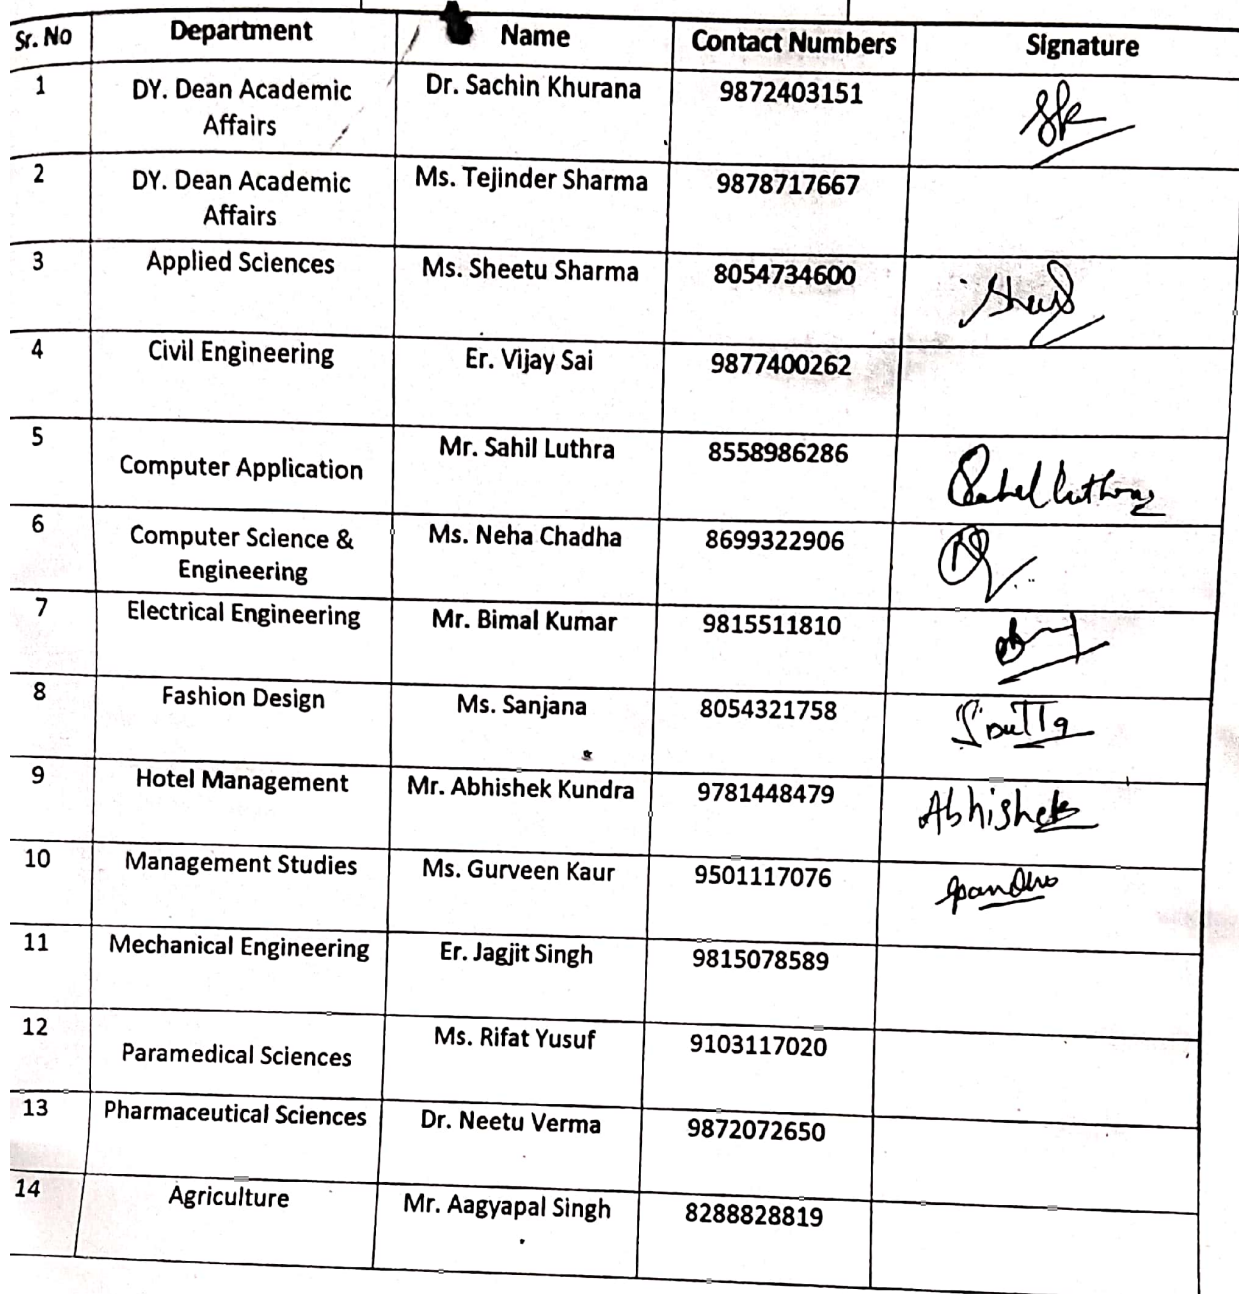 Sr. No Department Name Contact Numbers Signature
1 DY. Dean Academic Dr. Sachin Khurana 9872403151
Affairs
2 DY. Dean Academic Ms. Tejinder Sharma 9878717667
Affairs
3 Applied Sciences Ms. Sheetu Sharma 8054734600
4 Civil Engineering Er. Vijay Sai 9877400262
5 Computer Application Mr. Sahil Luthra 8558986286 Sahil Luthra
6 Computer Science & Ms. Neha Chadha 8699322906
Engineering
7 Electrical Engineering Mr. Bimal Kumar 9815511810
8 Fashion Design Ms. Sanjana 8054321758
9 Hotel Management Mr. Abhishek Kundra 9781448479 Abhishek
10 Management Studies Ms. Gurveen Kaur 9501117076
11 Mechanical Engineering Er. Jagjit Singh 9815078589
12 Paramedical Sciences Ms. Rifat Yusuf 9103117020
13 Pharmaceutical Sciences Dr. Neetu Verma 9872072650
14 Agriculture Mr. Aagyapal Singh 8288828819